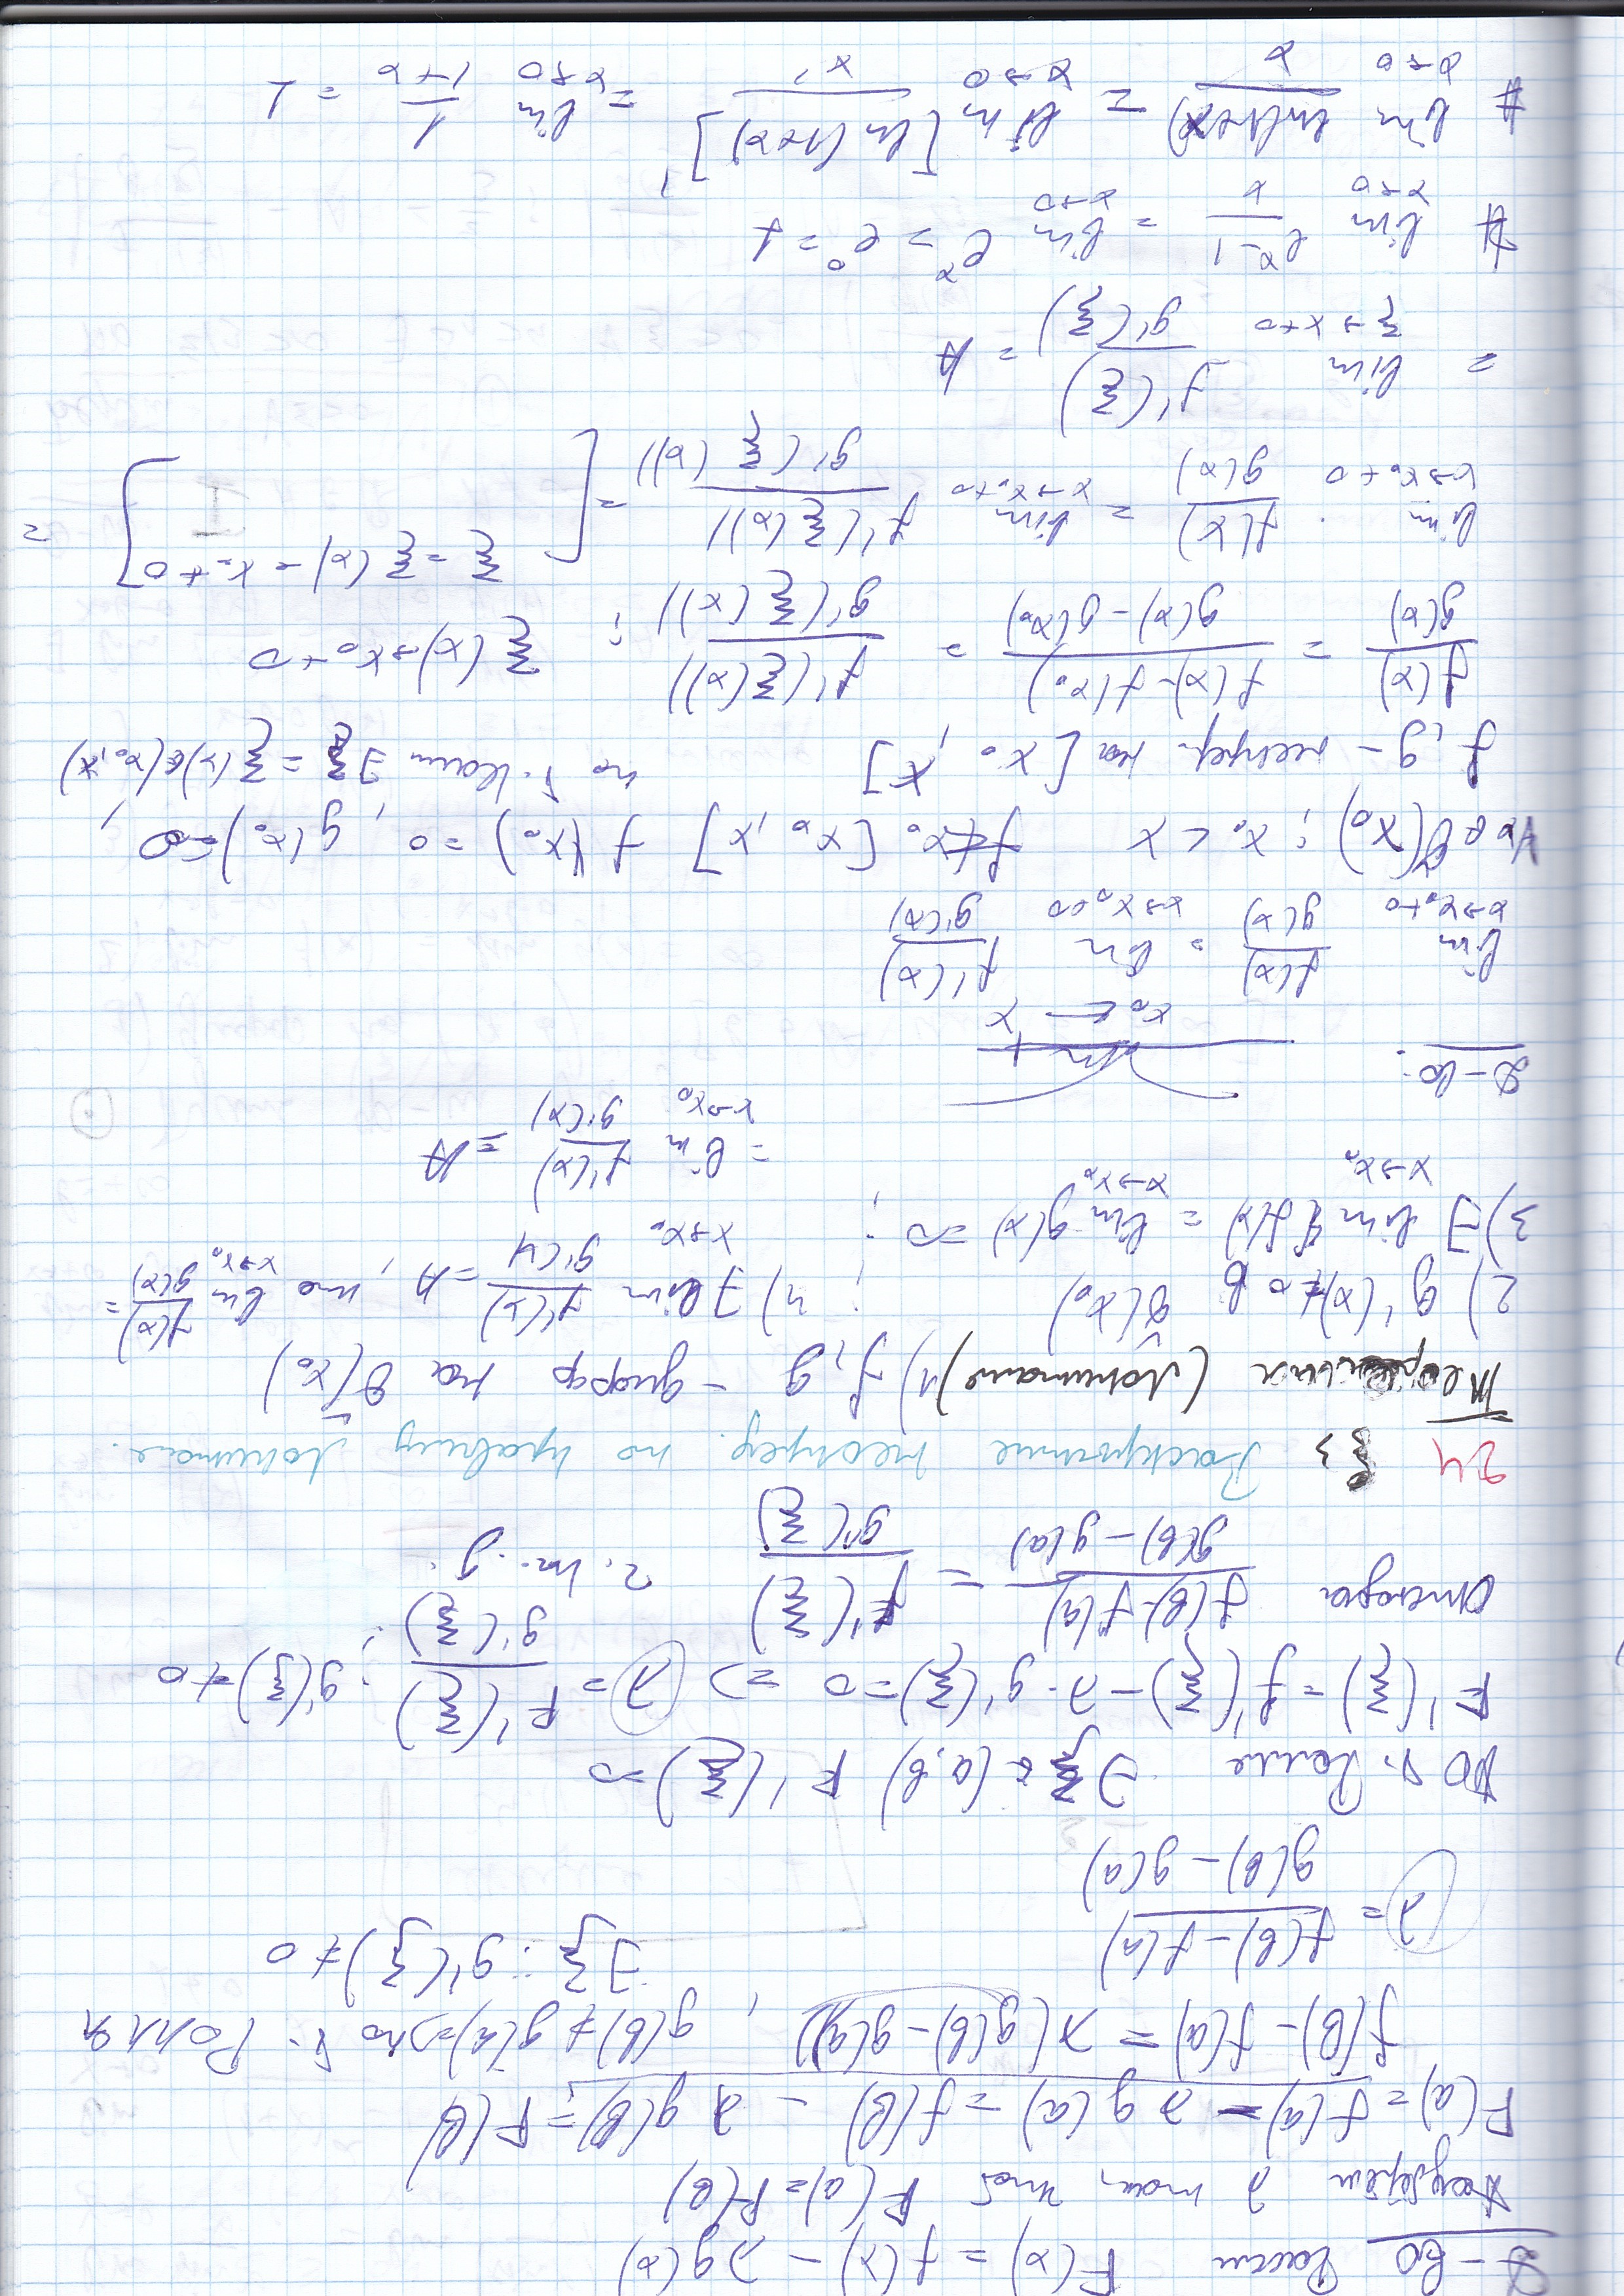 Д-во Рассм F(x) = f(x) - λg(x)
Подберём λ так, чтоб F(a)=F(b)
F(a) = f(a) - λ g(a) = f(b) - λ g(b) = F(b)
f(b) - f(a) = λ(g(b) - g(a)), g(b) ≠ g(a) => по т. Ролля
∃ ξ : g'(ξ) ≠ 0
λ = (f(b) - f(a)) / (g(b) - g(a))
По т. Ролля ∃ ξ ∈ (a,b) F'(ξ) = 0
F'(ξ) = f'(ξ) - λ · g'(ξ) = 0 => λ = F'(ξ) / g'(ξ) ; g'(ξ) ≠ 0
отсюда (f(b) - f(a)) / (g(b) - g(a)) = f'(ξ) / g'(ξ) ч. т. д.
24 §3 Раскрытие неопред. по правилу Лопиталя.
Теорема (Лопиталя) 1) f, g - дифф на Ŏ(x₀)
2) g'(x) ≠ 0 в Ŏ(x₀) ; 4) ∃ lim x→x₀ f'(x)/g'(x) = A, то lim x→x₀ f(x)/g(x) =
3) ∃ lim x→x₀ f(x) = lim x→x₀ g(x) = 0 ;
= lim x→x₀ f'(x)/g'(x) = A
Д-во:
x₀ ← x
lim x→x₀+0 f(x)/g(x) = lim x→x₀+0 f'(x)/g'(x)
∀x ∈ Ŏ(x₀) ; x₀ < x [x₀, x] f(x₀) = 0, g(x₀) = 0,
f, g - непрер. на [x₀, x] по т. Коши ∃ξ = ξ(x) ∈ (x₀, x)
f(x)/g(x) = (f(x) - f(x₀)) / (g(x) - g(x₀)) = f'(ξ(x)) / g'(ξ(x)) ; ξ(x) → x₀+0
lim x→x₀+0 f(x)/g(x) = lim x→x₀+0 f'(ξ(x)) / g'(ξ(x)) = [ξ = ξ(x) → x+0] =
= lim ξ→x+0 f'(ξ)/g'(ξ) = A
# lim x→0 (eˣ-1)/x = lim x→0 eˣ = e⁰ = 1
# lim x→0 ln(1+x)/x = lim x→0 [ln(1+x)]' / x' = lim x→0 1/(1+x) = 1